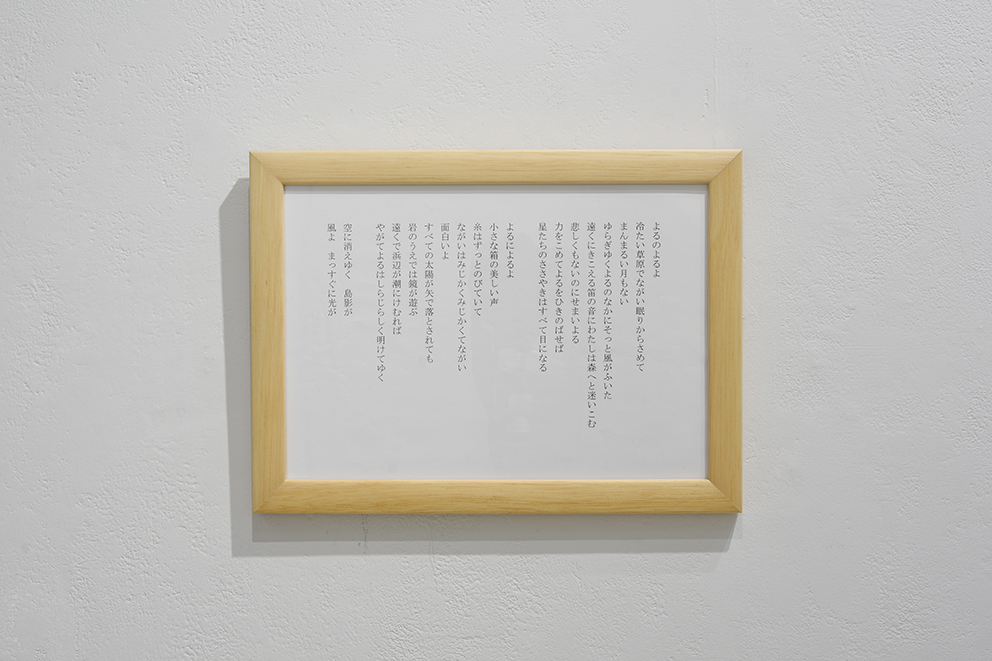 よるのよるよ
冷たい草原でながい眠りからさめて
まんまるい月もない
ゆらぎゆくよるのなかにそっと風がふいた
遠くにきこえる笛の音にわたしは森へと迷いこむ
悲しくもないのにせまいよる
力をこめてよるをひきのばせば
星たちのささやきはすべて目になる
よるによるよ
小さな箱の美しい声
糸はずっとのびていて
ながいはみじかくみじかくてながい
面白いよ
すべての太陽が矢で落とされても
岩のうえでは鏡が遊ぶ
遠くで浜辺が潮にけむれば
やがてよるはしらじらしく明けてゆく
空に消えゆく　島影が
風よ　まっすぐに光が